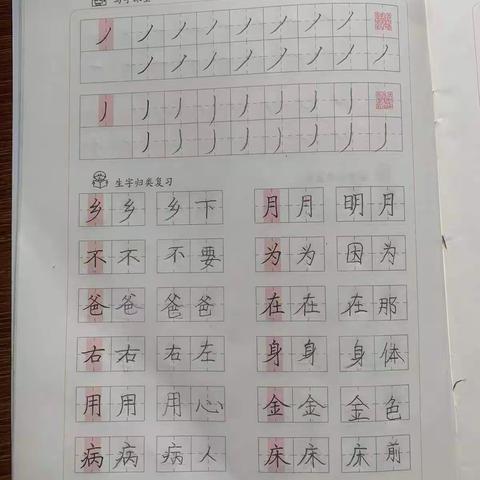 丿 丿 丿 丿 丿 丿 丿 丿
丿 丿 丿 丿 丿 丿 丿 丿
丿 丿 丿 丿 丿 丿 丿 丿
丿 丿 丿 丿 丿 丿 丿 丿
生字归类复习
乡 乡 乡 下 月 月 明 月
不 不 不 要 为 为 因 为
爸 爸 爸 爸 在 在 在 那
右 右 右 左 身 身 身 体
用 用 用 心 金 金 金 色
病 病 病 人 床 床 床 前